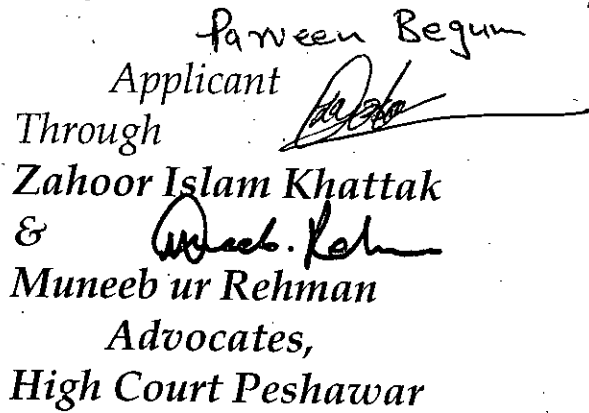 Parveen Begum
Applicant
Through
Zahoor Islam Khattak
&
Muneeb. Rehm
Muneeb ur Rehman
Advocates,
High Court Peshawar